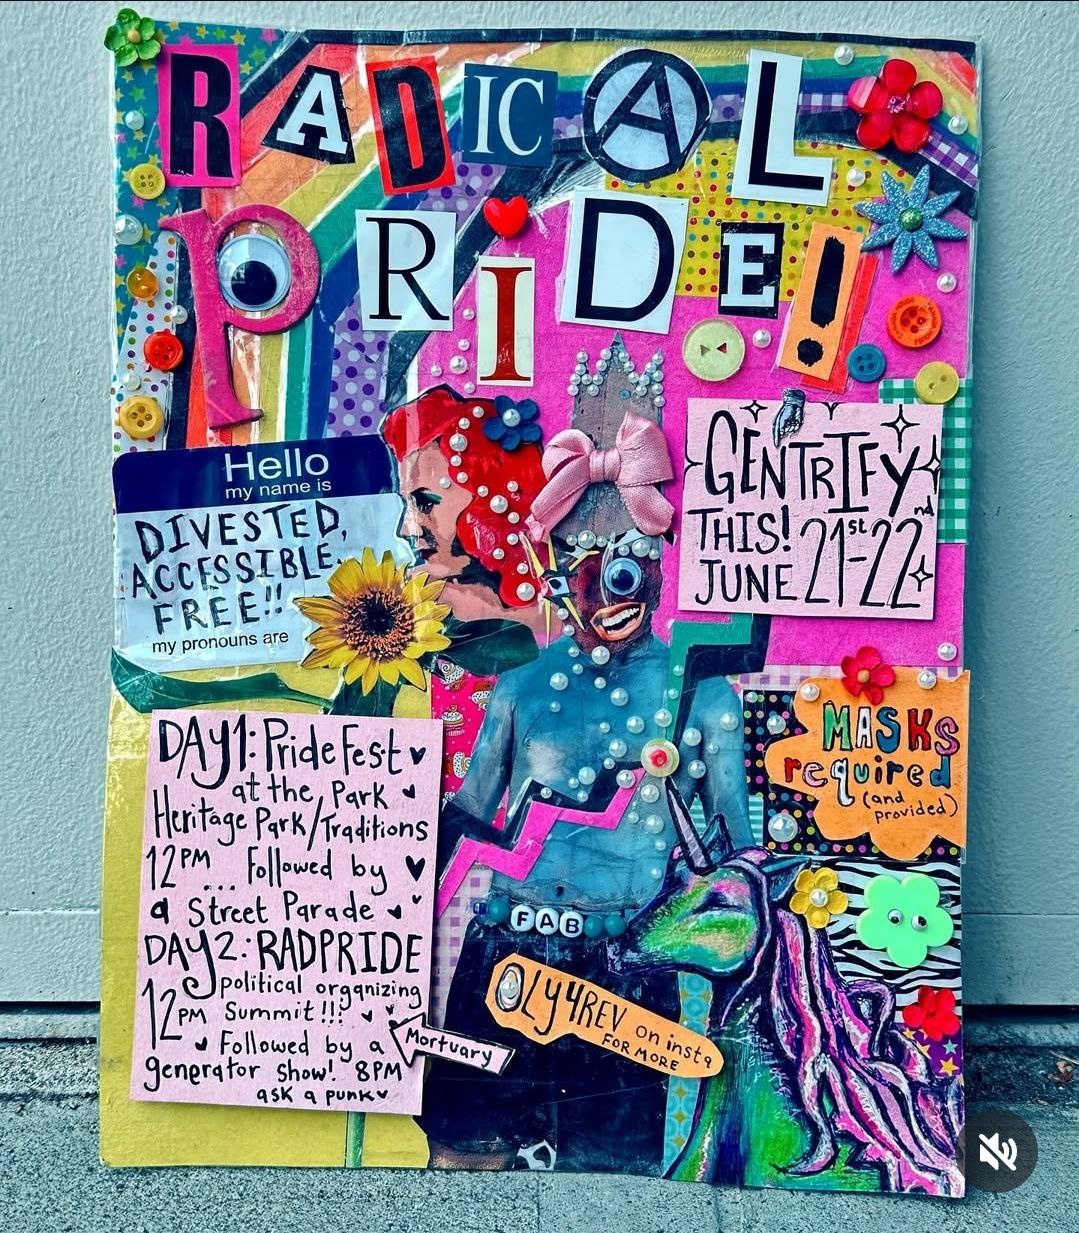 RADICAL
PRiDE!
Hello
my name is
DIVESTED,
ACCESSIBLE,
FREE!!
my pronouns are
GENTRIFY
THIS!
JUNE 21st-22nd
DAY1: Pride Fest
at the Park
Heritage Park/Traditions
12PM... Followed by
a Street Parade
DAY2: RADPRIDE
12PM political organizing
Summit!!!
Followed by a
generator show! 8PM
ask a punk
Mortuary
MASKS
required
(and
provided)
FAB
OLY4REV on insta
FOR MORE